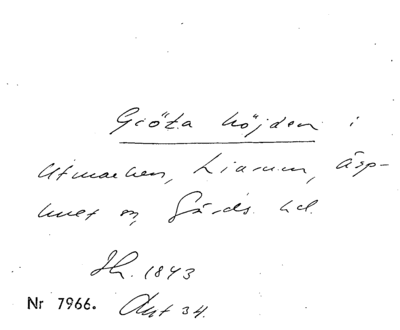 Giöta höjden i
Utmarken, Liarum, Äsp-
huet sn, Gärds hd.
Jh. 1843
Nr 7966. Akt 34.